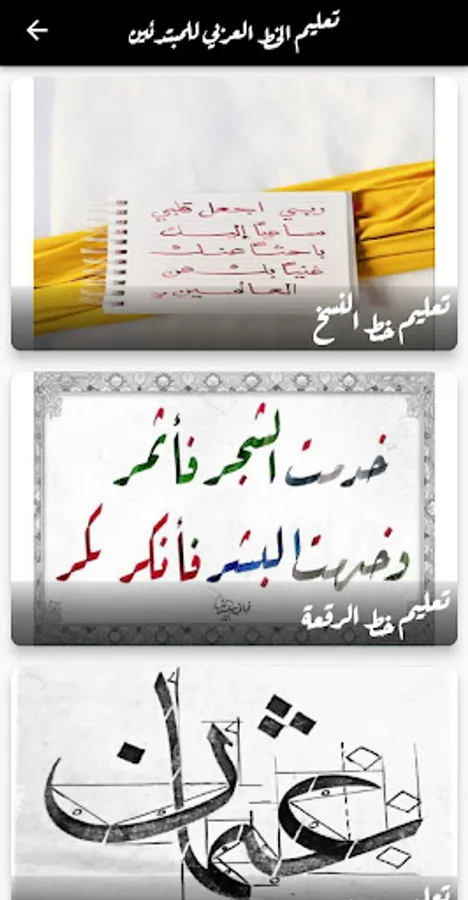 تعليم الخط العربي للمبتدئين
ربي اجعل قلبي
ساعيًا إليك
باحثًا عنك
غنيًا بك عن
العالمين
تعليم خط النسخ
خدمت الشجر فأثمر
وخدمت البشر فأنكر
تعليم خط الرقعة
عثمان